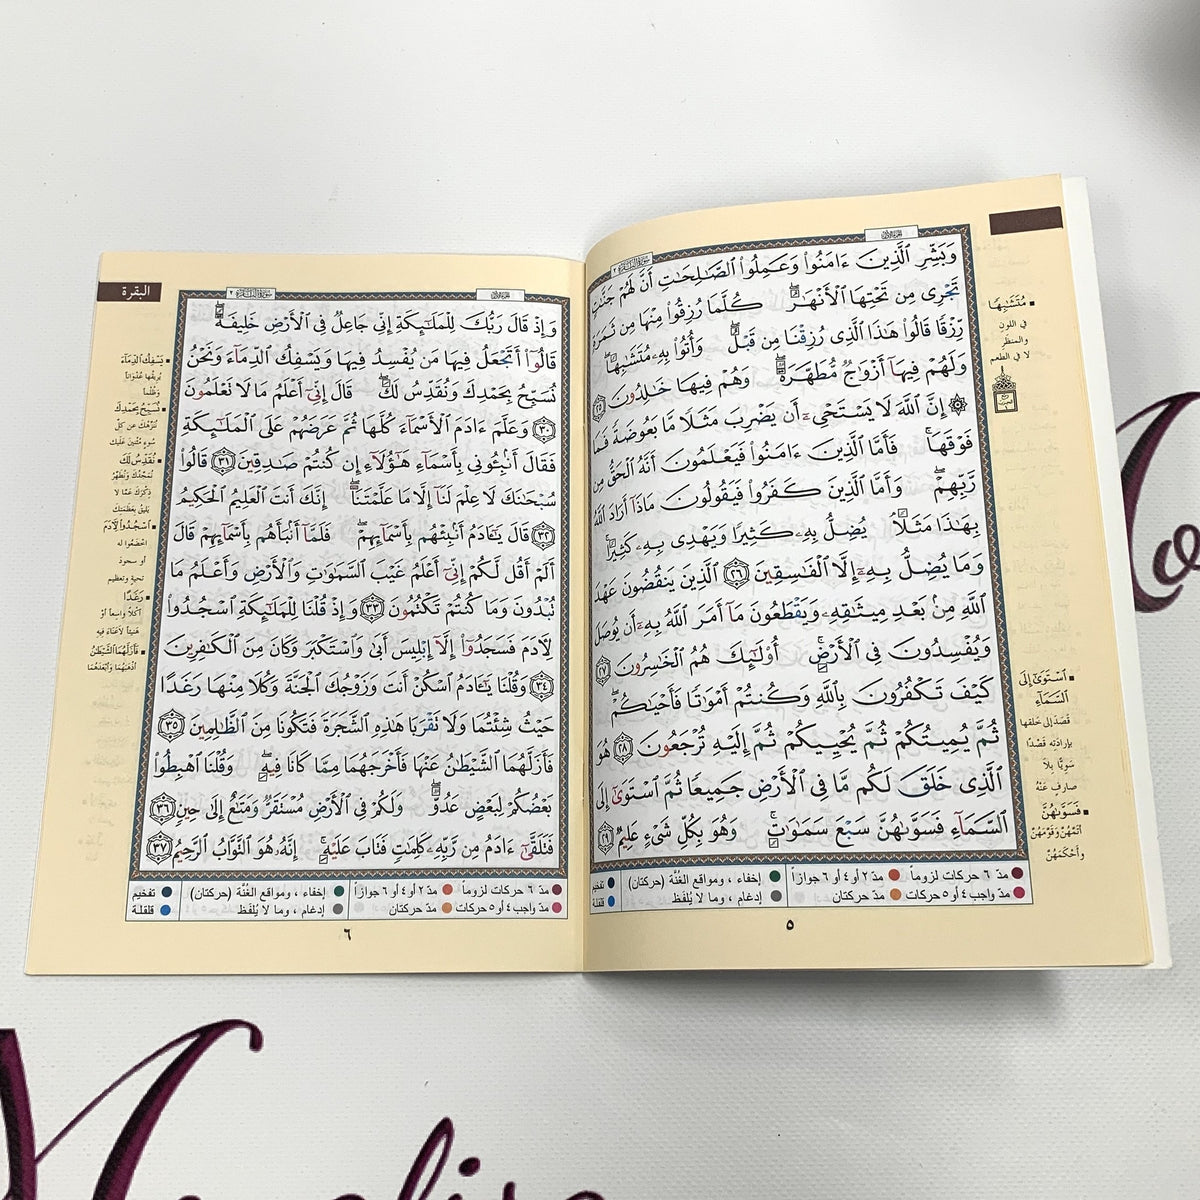 وَبَشِّرِ ٱلَّذِينَ ءَامَنُوا۟ وَعَمِلُوا۟ ٱلصَّـٰلِحَـٰتِ أَنَّ لَهُمْ جَنَّـٰتٍ
تَجْرِى مِن تَحْتِهَا ٱلْأَنْهَـٰرُ كُلَّمَا رُزِقُوا۟ مِنْهَا مِن ثَمَرَةٍ
رِّزْقًا قَالُوا۟ هَـٰذَا ٱلَّذِى رُزِقْنَا مِن قَبْلُ وَأُتُوا۟ بِهِۦ مُتَشَـٰبِهًا
وَلَهُمْ فِيهَآ أَزْوَٰجٌ مُّطَهَّرَةٌ وَهُمْ فِيهَا خَـٰلِدُونَ ٢٥
۞ إِنَّ ٱللَّهَ لَا يَسْتَحْىِۦٓ أَن يَضْرِبَ مَثَلًا مَّا بَعُوضَةً فَمَا
فَوْقَهَا فَأَمَّا ٱلَّذِينَ ءَامَنُوا۟ فَيَعْلَمُونَ أَنَّهُ ٱلْحَقُّ مِن
رَّبِّهِمْ وَأَمَّا ٱلَّذِينَ كَفَرُوا۟ فَيَقُولُونَ مَاذَآ أَرَادَ ٱللَّهُ
بِهَـٰذَا مَثَلًا يُضِلُّ بِهِۦ كَثِيرًا وَيَهْدِى بِهِۦ كَثِيرًا
وَمَا يُضِلُّ بِهِۦٓ إِلَّا ٱلْفَـٰسِقِينَ ٢٦ ٱلَّذِينَ يَنقُضُونَ عَهْدَ
ٱللَّهِ مِنۢ بَعْدِ مِيثَـٰقِهِۦ وَيَقْطَعُونَ مَآ أَمَرَ ٱللَّهُ بِهِۦٓ أَن يُوصَلَ
وَيُفْسِدُونَ فِى ٱلْأَرْضِ أُو۟لَـٰٓئِكَ هُمُ ٱلْخَـٰسِرُونَ ٢٧
كَيْفَ تَكْفُرُونَ بِٱللَّهِ وَكُنتُمْ أَمْوَٰتًا فَأَحْيَـٰكُمْ
ثُمَّ يُمِيتُكُمْ ثُمَّ يُحْيِيكُمْ ثُمَّ إِلَيْهِ تُرْجَعُونَ ٢٨ هُوَ
ٱلَّذِى خَلَقَ لَكُم مَّا فِى ٱلْأَرْضِ جَمِيعًا ثُمَّ ٱسْتَوَىٰٓ إِلَى
ٱلسَّمَآءِ فَسَوَّىٰهُنَّ سَبْعَ سَمَـٰوَٰتٍ وَهُوَ بِكُلِّ شَىْءٍ عَلِيمٌ ٢٩
مُتَشَـٰبِهًا
في اللون
والمنظر
لا في الطعم
ٱسْتَوَىٰ إِلَى
ٱلسَّمَآءِ
قَصَدَ إلى خلقها
بإرادته قَصْدًا
سَوِيًّا بلا
صارِفٍ عَنْهُ
فَسَوَّىٰهُنَّ
أتَمَّهُنَّ وَقَوَّمَهُنَّ
وأَحْكَمَهُنَّ
مدّ ٦ حركات لزوماً مدّ ٢ أو ٤ أو ٦ جوازاً إخفاء ، ومواقع الغُنَّة (حركتان) تفخيم
مدّ واجب ٤ أو ٥ حركات مدّ حركتان إدغام ، وما لا يُلفَظ قلقلة
٥
البقرة
وَإِذْ قَالَ رَبُّكَ لِلْمَلَـٰٓئِكَةِ إِنِّى جَاعِلٌ فِى ٱلْأَرْضِ خَلِيفَةً
قَالُوٓا۟ أَتَجْعَلُ فِيهَا مَن يُفْسِدُ فِيهَا وَيَسْفِكُ ٱلدِّمَآءَ وَنَحْنُ
نُسَبِّحُ بِحَمْدِكَ وَنُقَدِّسُ لَكَ قَالَ إِنِّىٓ أَعْلَمُ مَا لَا تَعْلَمُونَ
٣٠ وَعَلَّمَ ءَادَمَ ٱلْأَسْمَآءَ كُلَّهَا ثُمَّ عَرَضَهُمْ عَلَى ٱلْمَلَـٰٓئِكَةِ
فَقَالَ أَنۢبِـُٔونِى بِأَسْمَآءِ هَـٰٓؤُلَآءِ إِن كُنتُمْ صَـٰدِقِينَ ٣١ قَالُوا۟
سُبْحَـٰنَكَ لَا عِلْمَ لَنَآ إِلَّا مَا عَلَّمْتَنَآ إِنَّكَ أَنتَ ٱلْعَلِيمُ ٱلْحَكِيمُ
٣٢ قَالَ يَـٰٓـَٔادَمُ أَنۢبِئْهُم بِأَسْمَآئِهِمْ فَلَمَّآ أَنۢبَأَهُم بِأَسْمَآئِهِمْ قَالَ
أَلَمْ أَقُل لَّكُمْ إِنِّىٓ أَعْلَمُ غَيْبَ ٱلسَّمَـٰوَٰتِ وَٱلْأَرْضِ وَأَعْلَمُ مَا
تُبْدُونَ وَمَا كُنتُمْ تَكْتُمُونَ ٣٣ وَإِذْ قُلْنَا لِلْمَلَـٰٓئِكَةِ ٱسْجُدُوا۟
لِـَٔادَمَ فَسَجَدُوٓا۟ إِلَّآ إِبْلِيسَ أَبَىٰ وَٱسْتَكْبَرَ وَكَانَ مِنَ ٱلْكَـٰفِرِينَ
٣٤ وَقُلْنَا يَـٰٓـَٔادَمُ ٱسْكُنْ أَنتَ وَزَوْجُكَ ٱلْجَنَّةَ وَكُلَا مِنْهَا رَغَدًا
حَيْثُ شِئْتُمَا وَلَا تَقْرَبَا هَـٰذِهِ ٱلشَّجَرَةَ فَتَكُونَا مِنَ ٱلظَّـٰلِمِينَ ٣٥
فَأَزَلَّهُمَا ٱلشَّيْطَـٰنُ عَنْهَا فَأَخْرَجَهُمَا مِمَّا كَانَا فِيهِ وَقُلْنَا ٱهْبِطُوا۟
بَعْضُكُمْ لِبَعْضٍ عَدُوٌّ وَلَكُمْ فِى ٱلْأَرْضِ مُسْتَقَرٌّ وَمَتَـٰعٌ إِلَىٰ حِينٍ ٣٦
فَتَلَقَّىٰٓ ءَادَمُ مِن رَّبِّهِۦ كَلِمَـٰتٍ فَتَابَ عَلَيْهِ إِنَّهُۥ هُوَ ٱلتَّوَّابُ ٱلرَّحِيمُ ٣٧
يَسْفِكُ ٱلدِّمَآءَ
يُرِيقُها عُدْوَانًا
وَظُلْمًا
نُسَبِّحُ بِحَمْدِكَ
نُنَزِّهُكَ عن كلِّ
سُوءٍ مُثْنِينَ عَلَيك
نُقَدِّسُ لَكَ
نُمَجِّدُكَ ونُطَهِّرُ
ذِكْرَكَ عَمَّا لا
يَليقُ بعَظَمَتِكَ
ٱسْجُدُوا۟ لِـَٔادَمَ
اخْضَعُوا له
أو سجودَ
تحيةٍ وتعظيمٍ
رَغَدًا
أَكْلاً واسِعاً أوْ
هَنِيئاً لا عَنَاءَ فِيهِ
فَأَزَلَّهُمَا ٱلشَّيْطَـٰنُ
أَذْهَبَهُمَا وَأَبْعَدَهُمَا
مدّ ٦ حركات لزوماً مدّ ٢ أو ٤ أو ٦ جوازاً إخفاء ، ومواقع الغُنَّة (حركتان) تفخيم
مدّ واجب ٤ أو ٥ حركات مدّ حركتان إدغام ، وما لا يُلفَظ قلقلة
٦